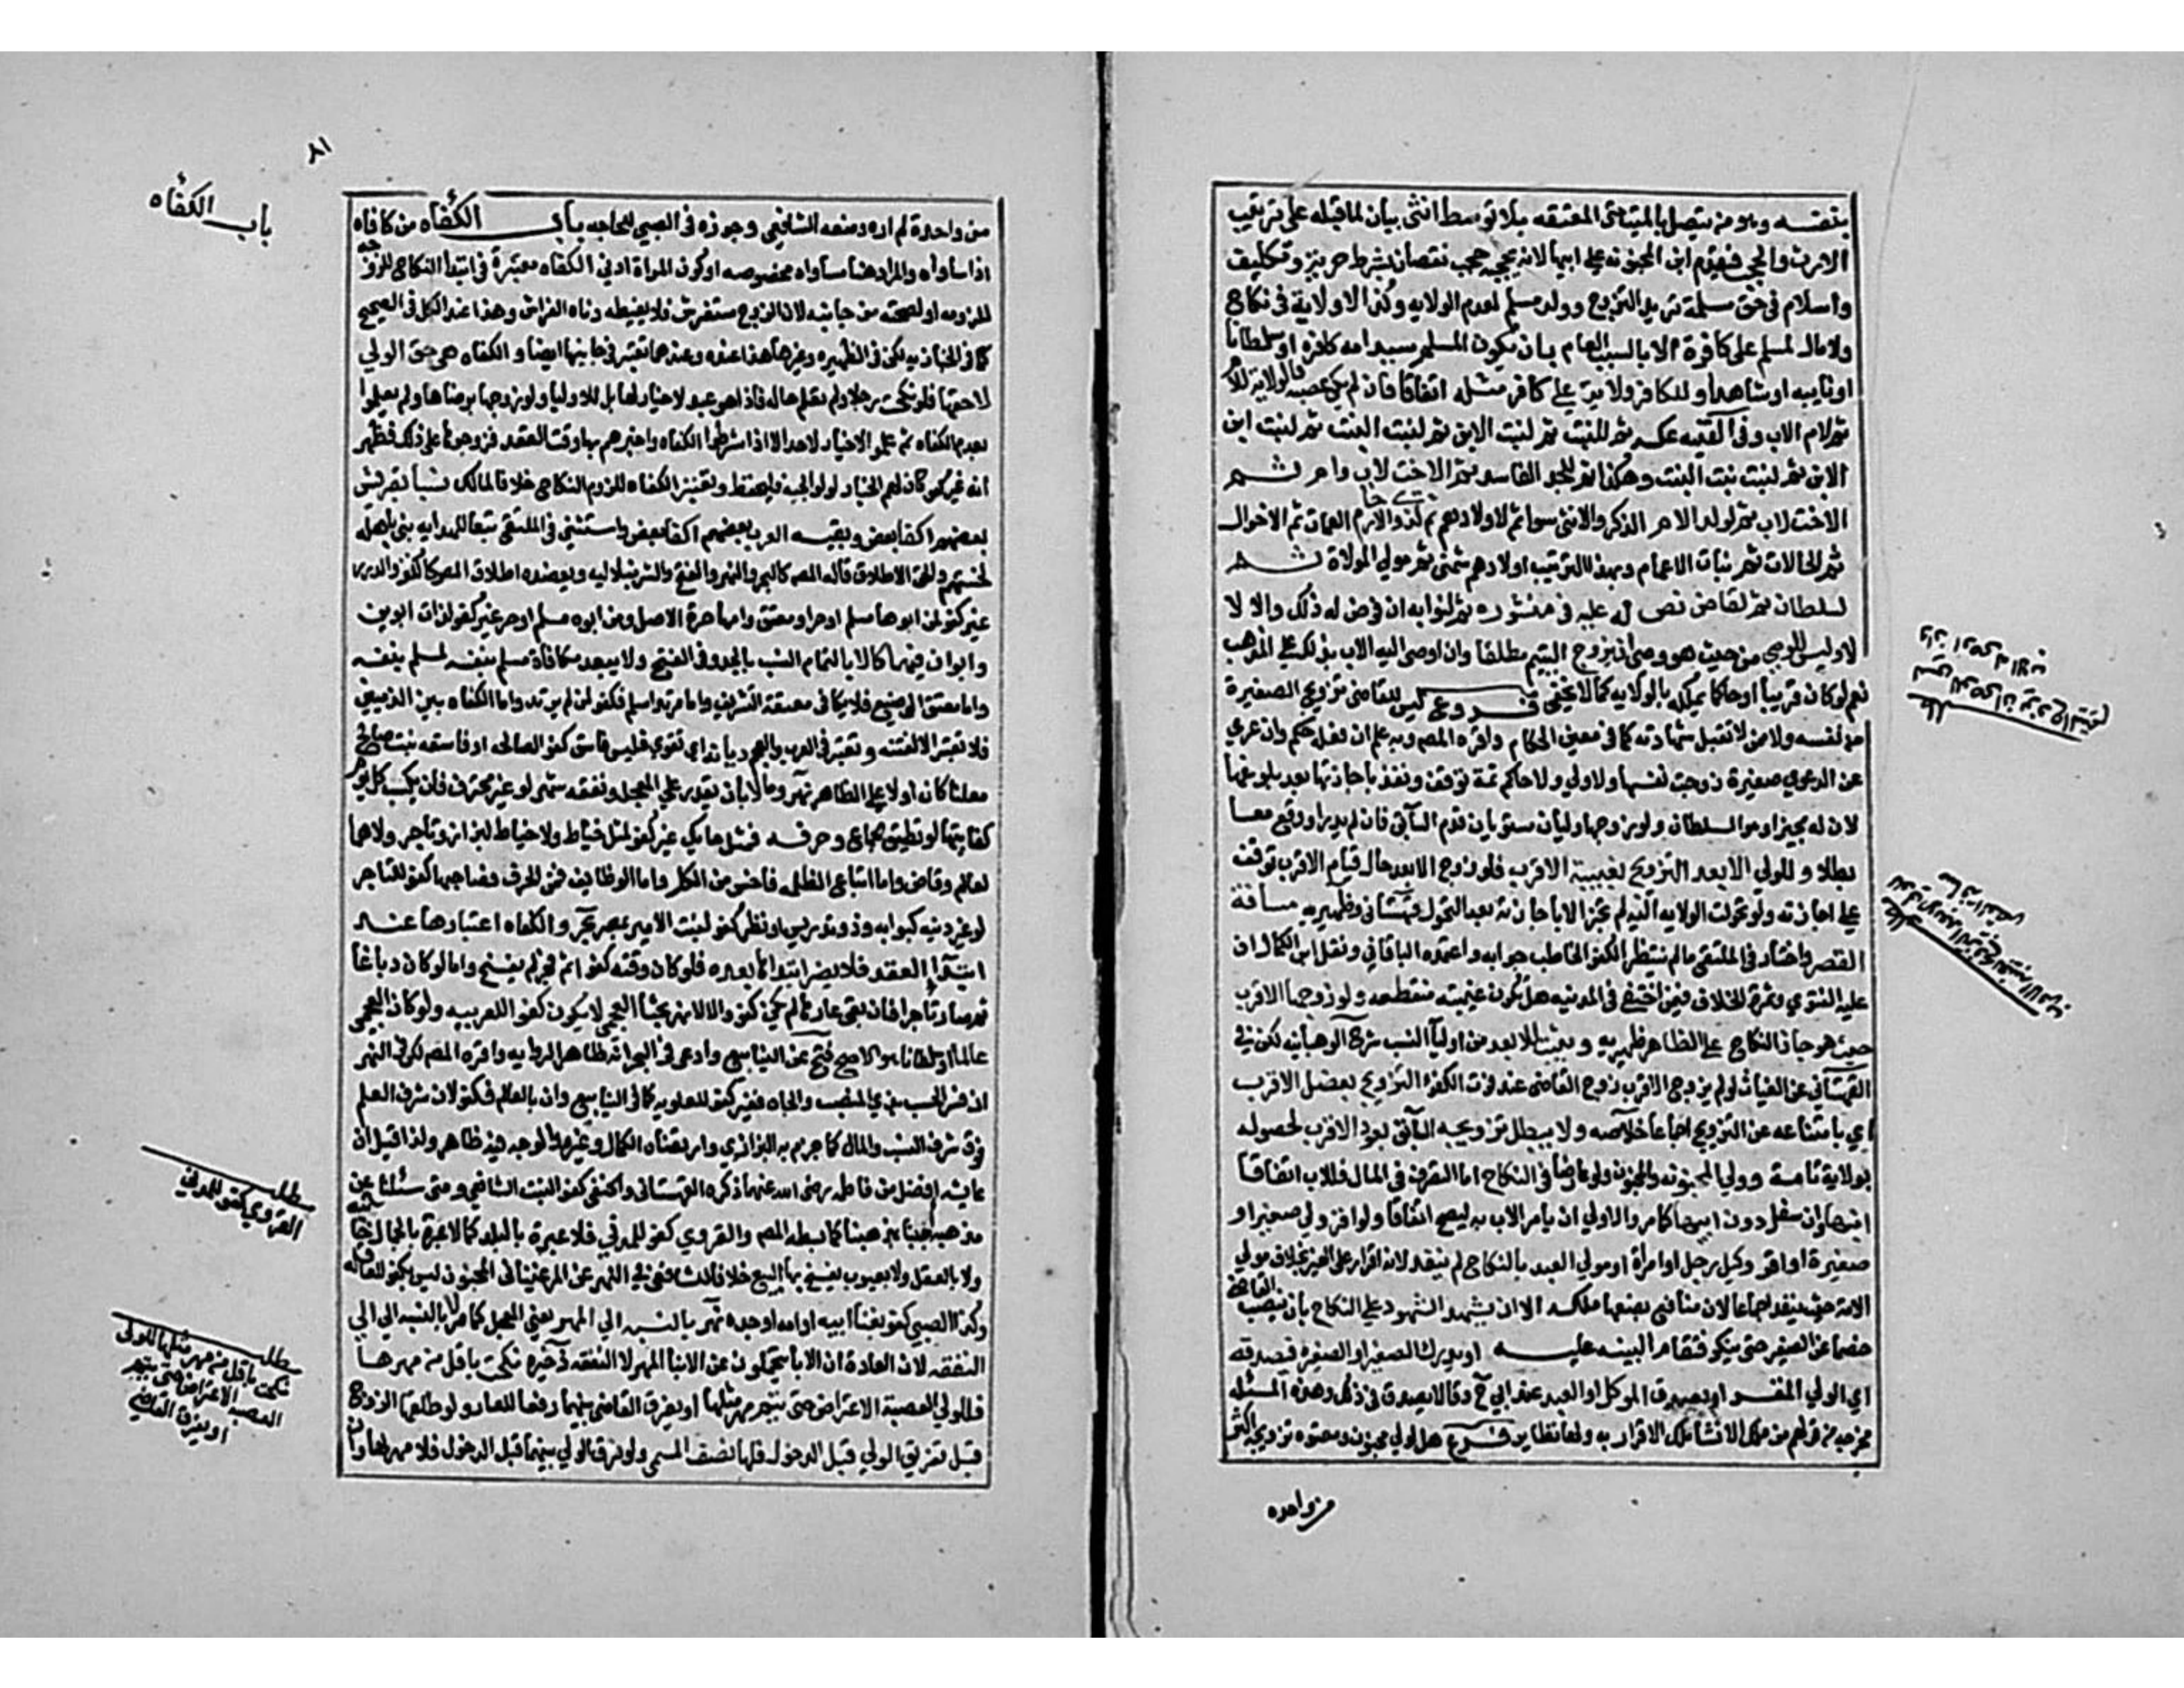 بنفسه وهو من يتصل بالميت حتى المعتقه بلا توسط انثى بيان لما قبله على ترتيب
الارث والحجب فيقدم ابن المجنونه على ابيها لانه يحجبه حجب نقصان بشرط حريه وتكليف
واسلام في حق مسلمة تريد التزوج وولد مسلم لعدم الولايه وكذا لا ولاية في نكاح
ولا مال لمسلم على كافرة الا بالسبب العام بان يكون المسلم سيد امه كافره او سلطانا
او نايبه او شاهدا وللكافر ولاية على كافر مثله اتفاقا فان لم يكن عصبه فالولاية للام
ثم لام الاب وفي القنيه عكسه ثم للبنت ثم لبنت الابن ثم لبنت البنت ثم لبنت ابن
الابن ثم لبنت بنت البنت وهكذا ثم للجد الفاسد ثم للاخت لاب وام ثم
الاخت لاب ثم لولد الام الذكر والانثى سوا ثم لاولادهم ثم لذوي الارحام العمات ثم الاخوال
ثم الخالات ثم بنات الاعمام وبهذا الترتيب اولادهم شمني ثم مولي الموالاة ثم
لسلطان ثم لقاض نص له عليه في منشوره ثم لنوابه ان فوض له ذلك والا لا
لا وليس للوصي من حيث هو وصي ان يزوج اليتيم مطلقا وان اوصى اليه الاب بذلك على المذهب
نعم لو كان قريبا او حاكما يملكه بالولايه كما لا يخفى فروع ليس للقاضي تزويج الصغيرة
من نفسه ولا ممن لا تقبل شهادته كما في معين الحكام واقره المصـ وبه علم ان فعله حكم وان عري
عن الدعوي صغيرة زوجت نفسها ولا ولي ولا حاكم ثمة توقف ونفذ باجازتها بعد بلوغها
لان له مجيزا وهو السلطان ولو زوجها وليان مستويان قدم السابق فان لم يدر او وقع معا
بطلا وللولي الابعد التزويج بغيبة الاقرب فلو زوج الابعد حال قيام الاقرب توقف
على اجازته ولو تحولت الولايه اليه لم يجز الا باجازته بعد التحول قهستاني وظهيريه مسافة
القصر واختار في الملتقى ما لم ينتظر الكفو الخاطب جوابه واعتمده الباقاني ونقل ابن الكمال ان
عليه الفتوي وثمرة الخلاف فيمن اختفى في المدينه هل تكون غيبته منقطعه ولو زوجها الاقرب
حيث هو جاز النكاح على الظاهر ظهيريه ويثبت للابعد من اوليا النسب شرح الوهبانيه لكن في
القهستاني عن الغياث لو لم يزوج الاقرب زوج القاضي عند فوت الكفؤ التزويج بعضل الاقرب
اي بامتناعه عن التزويج اجماعا خلاصه ولا يبطل تزويجه السابق بعود الاقرب لحصوله
بولاية تامة وولي المجنونه والمجنون ولو عارضا في النكاح اما التصرف في المال فللاب اتفاقا
ابنها وان سفل دون ابيها كما مر والاولي ان يامر الاب به ليصح اتفاقا ولو اقر ولي صغير او
صغيرة او اقر وكيل رجل او امرأة او مولي العبد بالنكاح لم ينفذ لانه اقرار على الغير بخلاف مولي
الامة حيث ينفذ اجماعا لان منافع بضعها ملكه الا ان يشهد الشهود على النكاح بان ينصب القاضي
خصما عن الصغير حتى ينكر فتقام البينه عليه او يدرك الصغير او الصغيره فصدقه
اي الولي المقر او يصدق الموكل او العبد عند ابي ح وقالا يصدق في ذلك وهذه المسئله
مخرجه من قولهم من ملك الانشا ملك الاقرار به ولها نظاير فرع هل لولي مجنون ومعتوه تزويجه اكثر
من واحده
٨١
باب الكفاه
من واحدة لم اره ومنعه الشافعي وجوزه في الصبي للحاجه باب الكفاه من كافاه
اذا ساواه والمراد هنا مساواه مخصوصه او كون المراة ادني الكفاه معتبرة في ابتدا النكاح للزومه
للزومه او لصحته من جانبه لان الزوج مستفرش فلا يغيظه دناه الفراش وهذا عند الكل في الصحيح
كما في الخبازيه لكن في الظهيره وغيرها هذا عنده وعندهما تعتبر في جانبها ايضا والكفاه هي حق الولي
لا حقها فلو نكحت رجلا ولم تعلم حاله فاذا هو عبد لا خيار لها بل للاوليا ولو زوجها برضاها ولم يعلموا
بعدم الكفاه ثم علموا لا خيار لاحد الا اذا اشرطوا الكفاه واخبرهم بها وقت العقد فزوجوها على ذلك فظهر
انه غير كفو كان لهم الخيار ولوالجيه فليحفظ وتعتبر الكفاه للزوم النكاح خلافا لمالك نسبا فقريش
بعضهم اكفا بعض وبقيه العرب بعضهم اكفا بعض واستثني في الملتقى تبعا للهدايه بني باهله
لخستهم والحق الاطلاق قاله المصـ كالبحر والنهر والفتح والشرنبلاليه ويعضده اطلاق المصـ كالكنز والدرر
غير كفو لمن ابوها مسلم او حر او معتق وامها حرة الاصل ومن ابوه مسلم او حر غير كفو لذات ابوين
وابوان فيهما كالابا لتمام النسب بالجد وفي الفتح ولا يبعد مكافاة مسلم بنفسه لمسلم بنفسه
واما معتق الوضيع فلا يكافى معتقة الشريف واما مرتد اسلم فكفو لمن لم يرتد واما الكفاه بين الذميين
فلا تعتبر الا لفتنه وتعتبر في العرب والعجم ديانه اي تقوي فليس فاسق كفو الصالحه او فاسقه بنت صالح
معلنا كان او لا على الظاهر نهر ومالا بان يقدر على المعجل ونفقه شهر لو غير محترف فان يكسب كل يوم
كفايتها لو تطيق جماع وحرفه فمثل حايك غير كفو لمثل خياط ولا خياط لبزاز وتاجر ولا هما
لعالم وقاض واما اتباع الظلمه فاخس من الكل واما الوظايف فمن الحرف فصاحبها كفو للتاجر
لو غير دنيه كبوابه وذو تدريس او نظر كفو لبنت الامير بمصر بحر والكفاه اعتبارها عند
ابتدا العقد فلا يضر زوالها بعده فلو كان وقته كفوا ثم فجر لم يفسخ واما لو كان دباغا
فصار تاجرا فان بقي عارها لم يكن كفو والا لا نهر بحثا العجمي لا يكون كفوا للعربيه ولو كان العجمي
عالما او سلطانا وهو الاصح فتح عن الينابيع وادعى في البحر انه ظاهر الروايه واقره المصـ لكن في النهر
ان فسر الحسب بذي المنصب والجاه فغير كفو للعلويه كما في الينابيع وان بالعالم فكفو لان شرف العلم
فوق شرف النسب والمال كما جزم به البزازي وارتضاه الكمال وغيره والوجه فيه ظاهر ولذا قيل ان
عايشه افضل من فاطمه رضي الله عنهما ذكره القهستاني والحنفي كفو لبنت الشافعي ومتى سئلنا عن
مذهبه اجبنا بمذهبنا كما بسطه المصـ والقروي كفو للمدني فلا عبرة بالبلد كما لا عبرة بالجمال خانيه
ولا بالعقل ولا بعيوب يفسخ بها البيع خلافا للشافعي لكن في النهر عن المرغيناني المجنون ليس بكفو للعاقله
وكذا الصبي كفو بغنا ابيه او امه او جده نهر بالنسبه الي المهر يعني المعجل كما مر لا بالنسبه الي
النفقه لان العادة ان الابا يتحملون عن الابنا المهر لا النفقه ذخيره نكحت باقل من مهرها
فللولي العصبة الاعتراض حتى يتم مهر مثلها او يفرق القاضي بينهما دفعا للعار ولو طلقها الزوج
قبل تفريق الولي قبل الدخول فلها نصف المسمي ولو فرق الولي بينهما قبل الدخول فلا مهر لها وان
مطلب
القروي كفو للمدني
مطلب
نكحت باقل من مهر مثلها للولي
العصبه الاعتراض حتى يتم
او يفرق القاضي